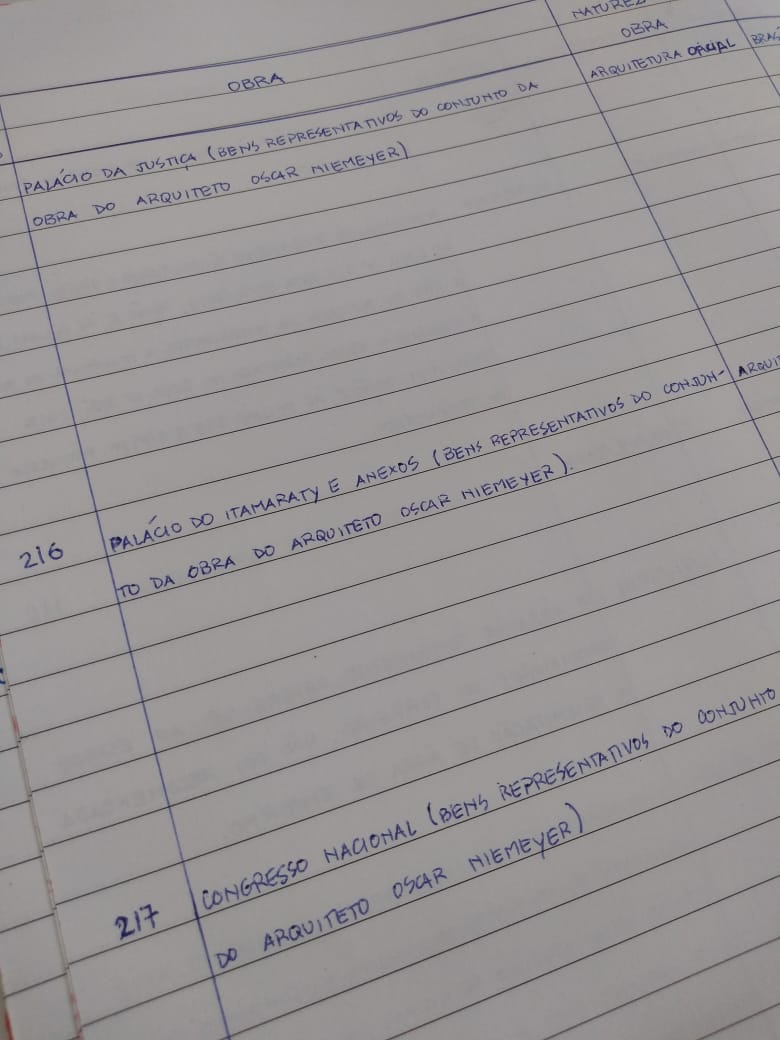 NATUREZ
OBRA
OBRA
ARQUITETURA OFICIAL
PALÁCIO DA JUSTIÇA (BENS REPRESENTATIVOS DO CONJUNTO DA
OBRA DO ARQUITETO OSCAR NIEMEYER)
216
PALÁCIO DO ITAMARATY E ANEXOS (BENS REPRESENTATIVOS DO CONJUN-
ARQUIT
TO DA OBRA DO ARQUITETO OSCAR NIEMEYER).
217
CONGRESSO NACIONAL (BENS REPRESENTATIVOS DO CONJUNTO
DO ARQUITETO OSCAR NIEMEYER)